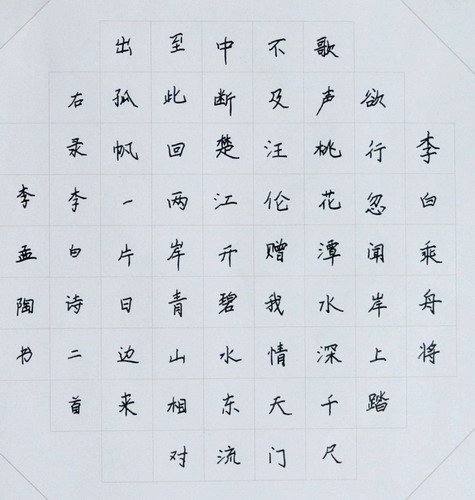 李白乘舟将
欲行忽闻岸上踏
歌声桃花潭水深千尺
不及汪伦赠我情天门
中断楚江开碧水东流
至此回两岸青山相对
出孤帆一片日边来
右录李白诗二首
李孟陶书